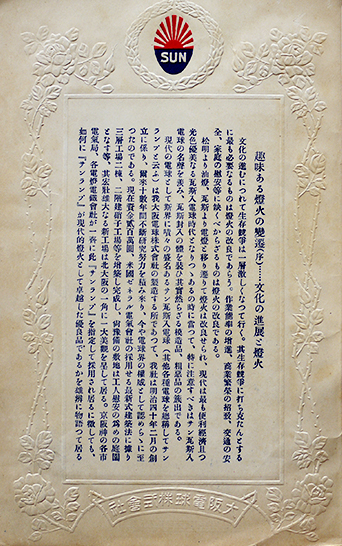 SUN
趣味ある燈火の變遷序……文化の進展と燈火
文化の進むにつれて生存競爭は一層激しくなつて行く。其生存競爭に打ち克たんとする
に最も必要なるものは燈火の改良であらう。作業能率の增進、商業繁榮の招致、交通の安
全、家庭の慰安等に缺くべからざるものは燈火の改良である。
松明より油燈、瓦斯より電燈と移り遷りて燈火は改良せられ、現代は最も便利經濟且つ
光色優美なる瓦斯入電球時代となりつゝある の時に當つて、特に注意すべきはサン瓦斯入
電球の名聲を羨み、瓦斯封入の體を裝ひ其實然らざる模造品、粗惡品の簇出である。
現代の電球として斯界に嘖々の盛名あるサン瓦斯入電球（其他各種電球を總稱してサン
ランプと云ふ）は我大阪電球株式會社の製造する所である。我社は明治四十年二月の創
立に係り、爾來十數年間不斷研究努力を積み來り、今や電球界の權威として認めらるゝに至
つたのである。現在資金貳百萬圓、米國ゼネラル電氣會社の採用せる最新式建築法に據り
三層工場二棟、二階建硝子工場等を增築し完成し、尙豫備の敷地は工人慰安の爲めの庭園
となす等、其宏壯大なる新工場は北大阪の一角に一大美觀を呈して居る。京阪神の各市
電氣局、各電燈電鐵會社が一齊に此『サンランプ』を指定して採用され居るに徵しても、
如何に『サンランプ』が現代的燈火として卓越した優良品であるかを雄辯に物語つて居る
大阪電球株式會社